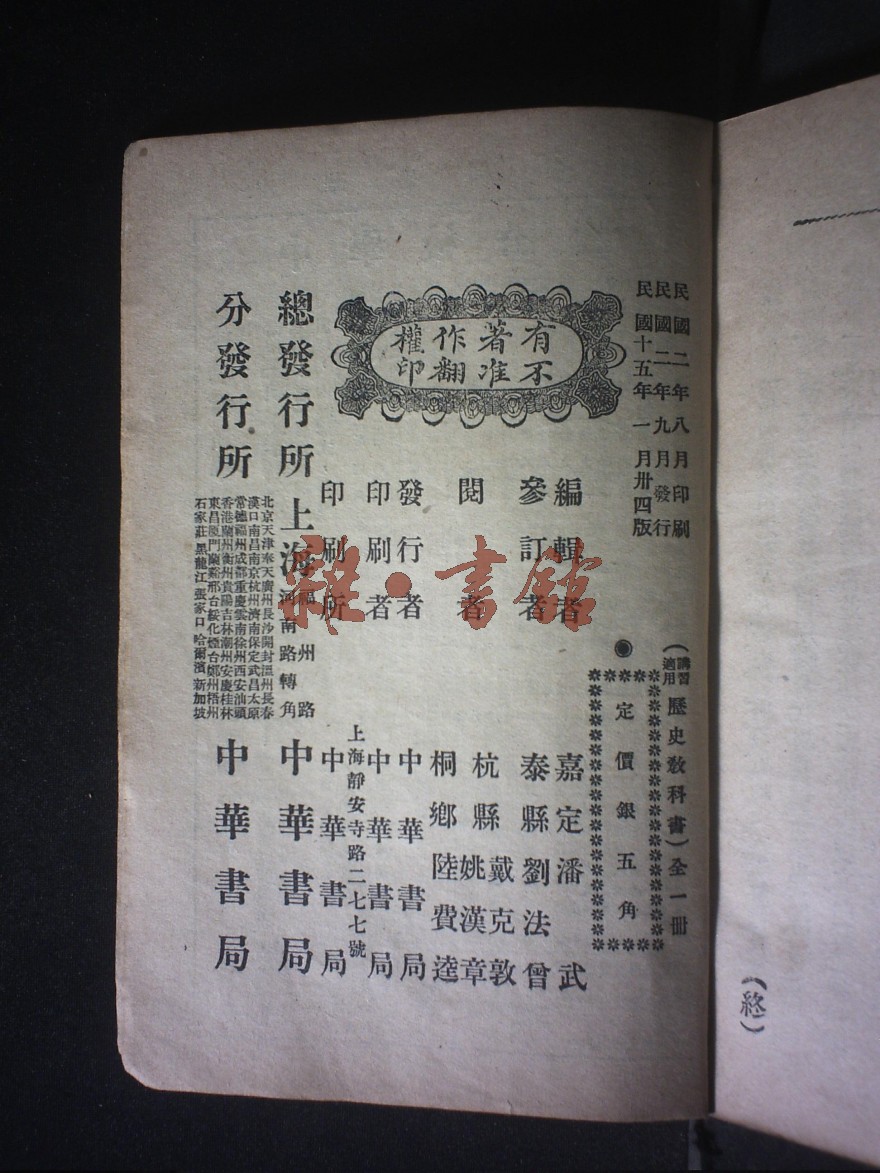 民國二年八月印刷
民國二年九月發行
民國十五年一月卅四版
（講習適用歷史教科書）全一冊
◉定價銀五角
有著作權
不准翻印
編輯者 嘉定潘 武
參訂者 泰縣劉法曾
閱者 杭縣戴克敦
姚漢章
桐鄉陸費逵
發行者 中華書局
印刷者 中華書局
上海靜安寺路二七七號
印刷所 中華書局
總發行所 上海福州路河南路轉角 中華書局
分發行所
北京天津奉天廣州長沙開封溫州長春
漢口南昌南京杭州濟南保定武昌太原
常德福州成都重慶雲南徐州西安汕頭
香港蘭州衡州貴陽吉林潮州安慶桂林
東昌廈門蘭谿邢台綏化煙台鄭州梧州
石家莊黑龍江張家口哈爾濱新加坡
中華書局
雜·書館
（終）